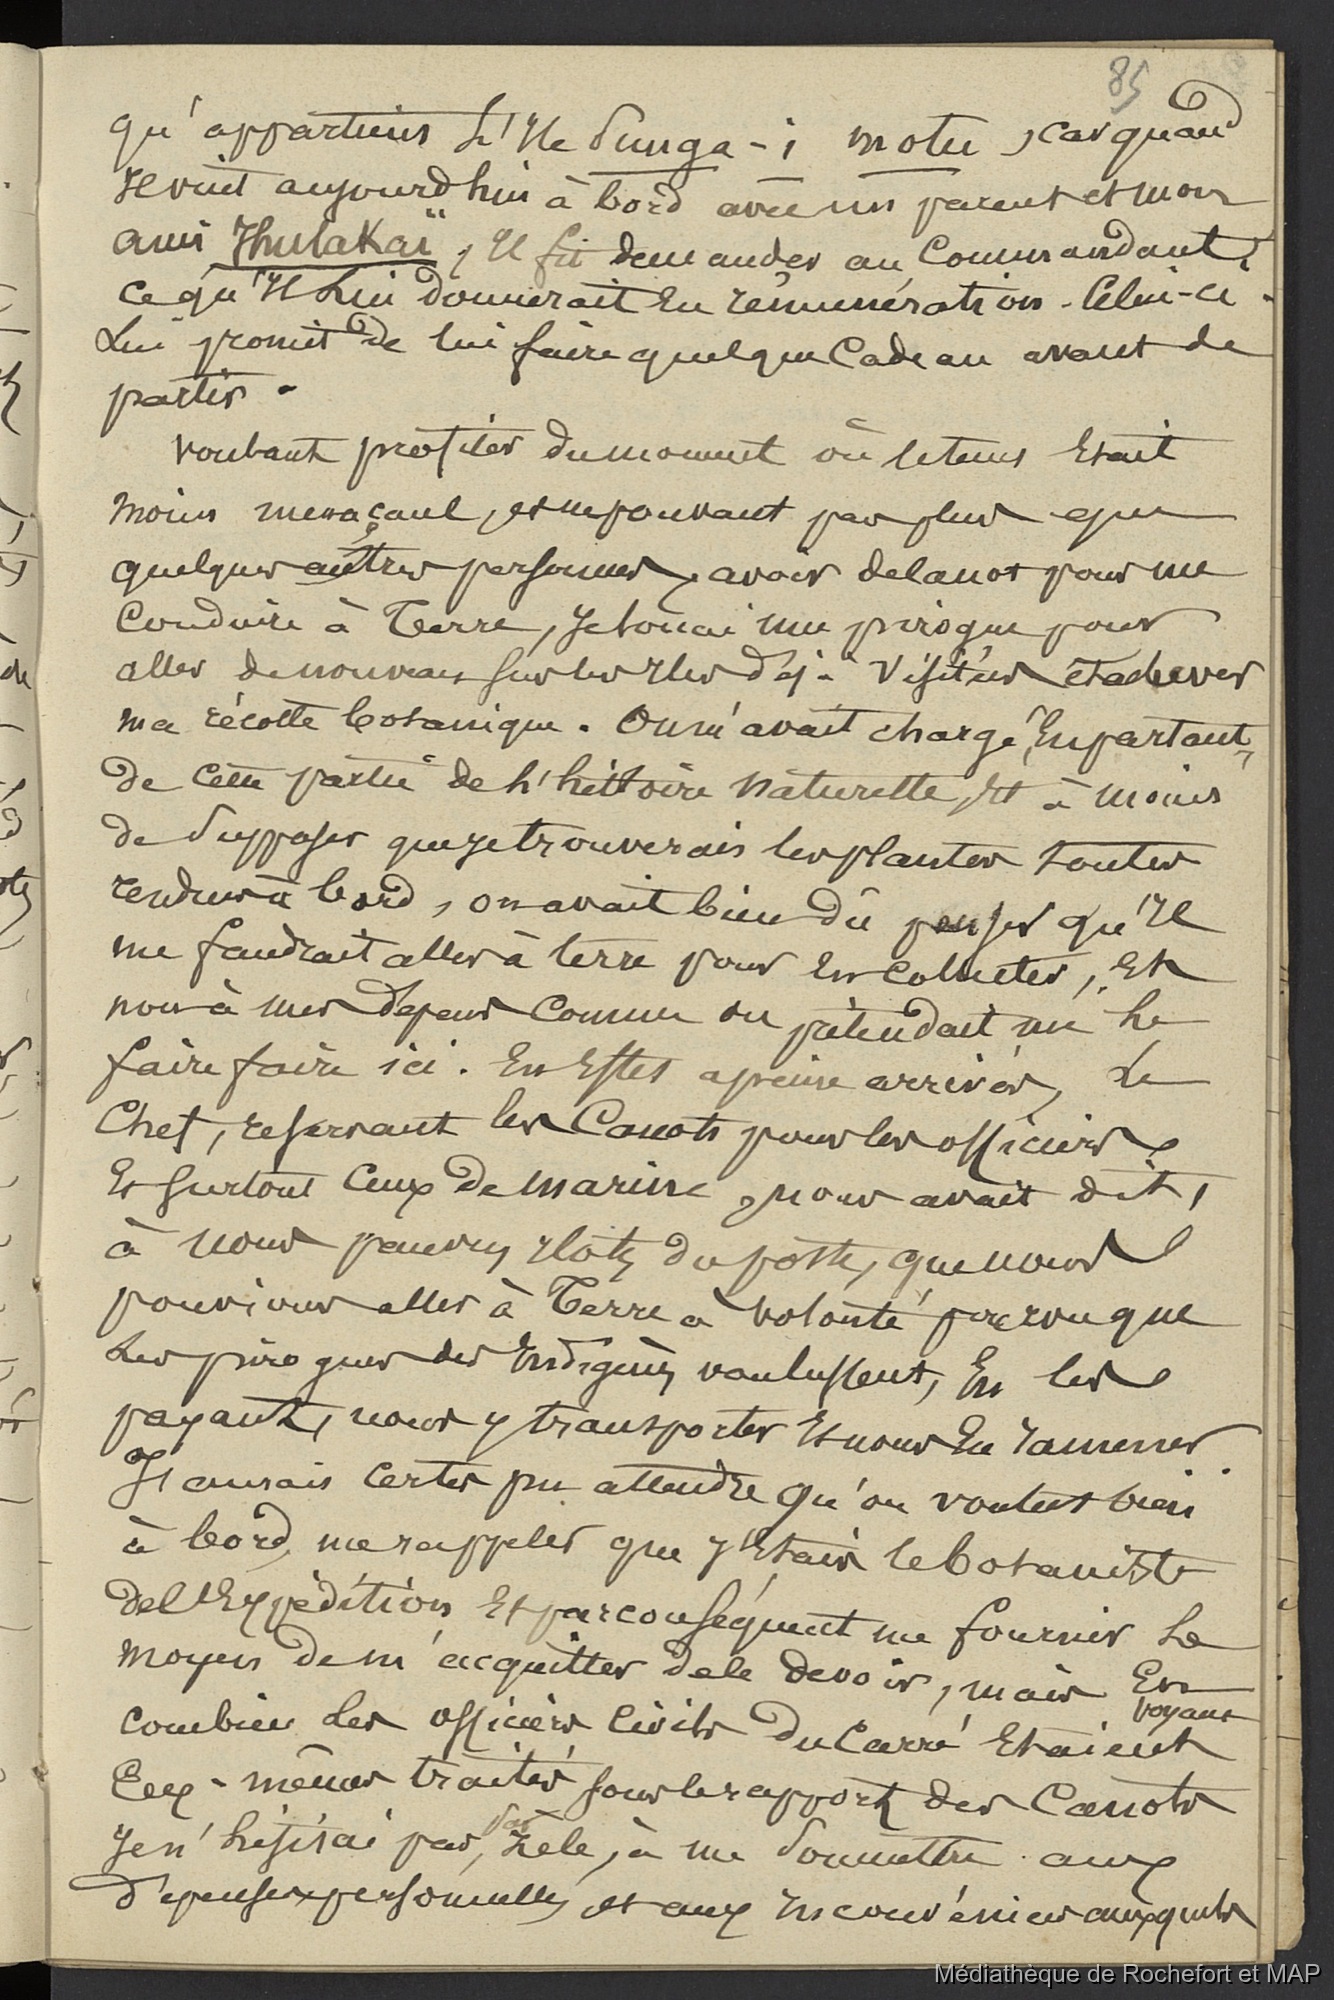 85
qu'appartiens l'Ile Punga-i motu, car quand
Il vint aujourd'hui à bord avec un parent et mon
ami Thulakaï, Il fit demander au Commandant,
ce qu'Il Lui donnerait En rémunération. Celui-ci
Lui promit de lui faire quelque Cadeau avant de
partir.
Voulant profiter du moment où le tems Etait
moins menaçant, et ne pouvant pas plus que
quelques autres personnes, avoir de canot pour me
Conduire à Terre, Je louai une pirogue pour
aller de nouveau sur les Iles déjà visitées et achever
ma récolte botanique. On m'avait chargé, En partant,
de cette partie de l'histoire Naturelle, Et à moins
de supposer que je trouverais les plantes toutes
rendues à bord, on avait bien dû penser qu'Il
me faudrait aller à terre pour En Collecter, Et
non à mes dépens Comme on prétendait me Le
faire faire ici. En Effet à peine arrivés, Le
Chef, reservant les Canots pour les officiers
Et surtout Ceux de marine, nous avait dit,
à nous pauvres Ilotes du poste, que nous
pouvions aller à Terre à volonté pourvu que
Les pirogues des Indigènes voulussent, En les
payant, nous y transporter Et nous En ramener.
J'aurais Certes pu attendre qu'on voulut bien
à bord, me rappeler que J'Etais le botaniste
de l'Expédition Et par conséquent me fournir Le
moyen de m'acquitter de ce devoir, mais En
voyant
combien Les officiers Civils du Carré Etaient
Eux-mêmes traités sous le rapport des Canots
Je n'hésitai pas, par zèle, à me soumettre aux
dépenses personnelles et aux Inconvéniens auxquels
Médiathèque de Rochefort et MAP